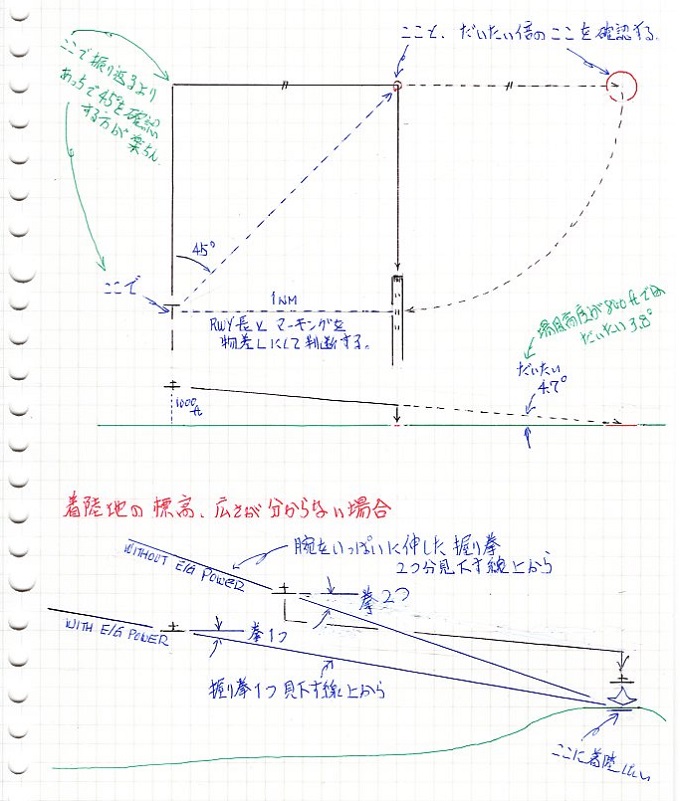 ここと、だいたい倍のここを確認する.
ここで振り返るより
あっちで45°を確認
する方が楽ちん.
45°
ここで
1NM
RWY長とマーキングを
物差しにして判断する。
場周高度が800ftでは
だいたい3.8°
だいたい
4.7°
1000ft
着陸地の標高、広さが分からない場合
WITHOUT E/G POWER
腕をいっぱいに伸した握り拳
2つ分見下す線上から
拳2つ
WITH E/G POWER
拳1つ
握り拳1つ見下す線上から
ここに着陸したい